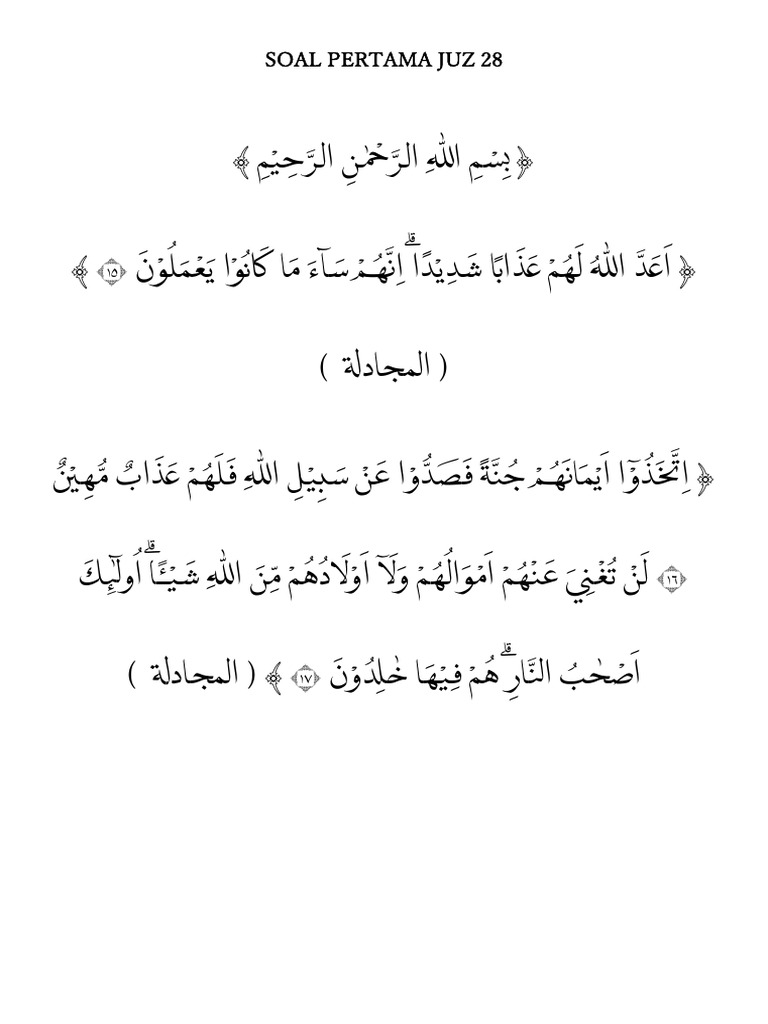 SOAL PERTAMA JUZ 28
﴿ بِسْمِ اللّٰهِ الرَّحْمٰنِ الرَّحِيْمِ ﴾
﴿ اَعَدَّ اللّٰهُ لَهُمْ عَذَابًا شَدِيْدًاۗ اِنَّهُمْ سَاۤءَ مَا كَانُوْا يَعْمَلُوْنَ ١٥ ﴾
( المجادلة )
﴿ اِتَّخَذُوْٓا اَيْمَانَهُمْ جُنَّةً فَصَدُّوْا عَنْ سَبِيْلِ اللّٰهِ فَلَهُمْ عَذَابٌ مُّهِيْنٌ
١٦ لَنْ تُغْنِيَ عَنْهُمْ اَمْوَالُهُمْ وَلَآ اَوْلَادُهُمْ مِّنَ اللّٰهِ شَيْـًٔاۗ اُولٰۤىِٕكَ
اَصْحٰبُ النَّارِۗ هُمْ فِيْهَا خٰلِدُوْنَ ١٧ ﴾ ( المجادلة )